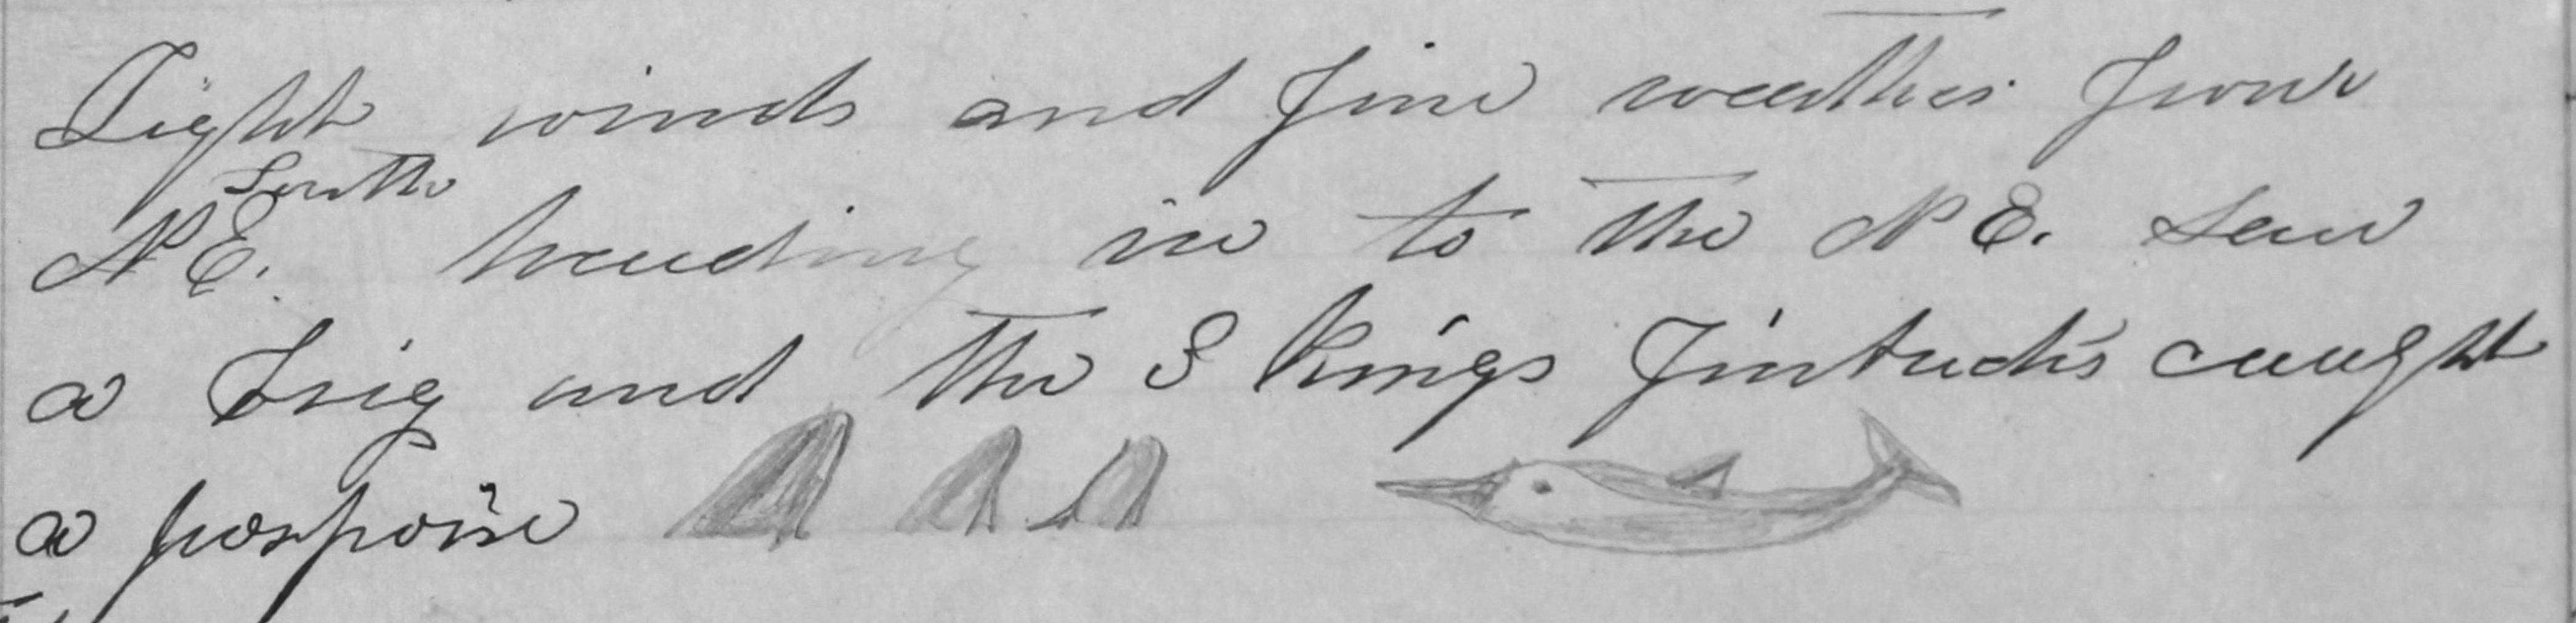 Light winds and fine weather from
South
N E. heading in to the N E. Saw
a Brig and the 3 Kings Finbacks caught
a porpoise